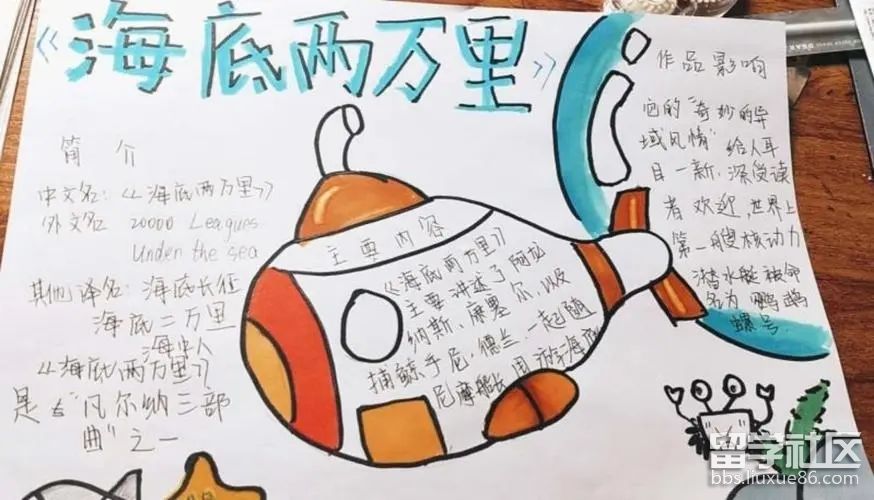 《海底两万里》
简介
中文名:《海底两万里》
外文名 20000 Leagues
Under the sea
其他译名:海底长征
海底二万里
海中人
《海底两万里》
是“凡尔纳三部
曲”之一
主要内容
《海底两万里》
主要讲述了阿龙
纳斯、康塞尔,以及
捕鲸手尼,德兰,一起随
尼摩艇长周游海底
作品影响
它的“奇妙的异
域风情”给人耳
目一新,深受读
者欢迎,世界上
第一艘核动力
潜水艇被命
名为鹦鹉
螺号.
留学社区
bbs.liuxue86.com